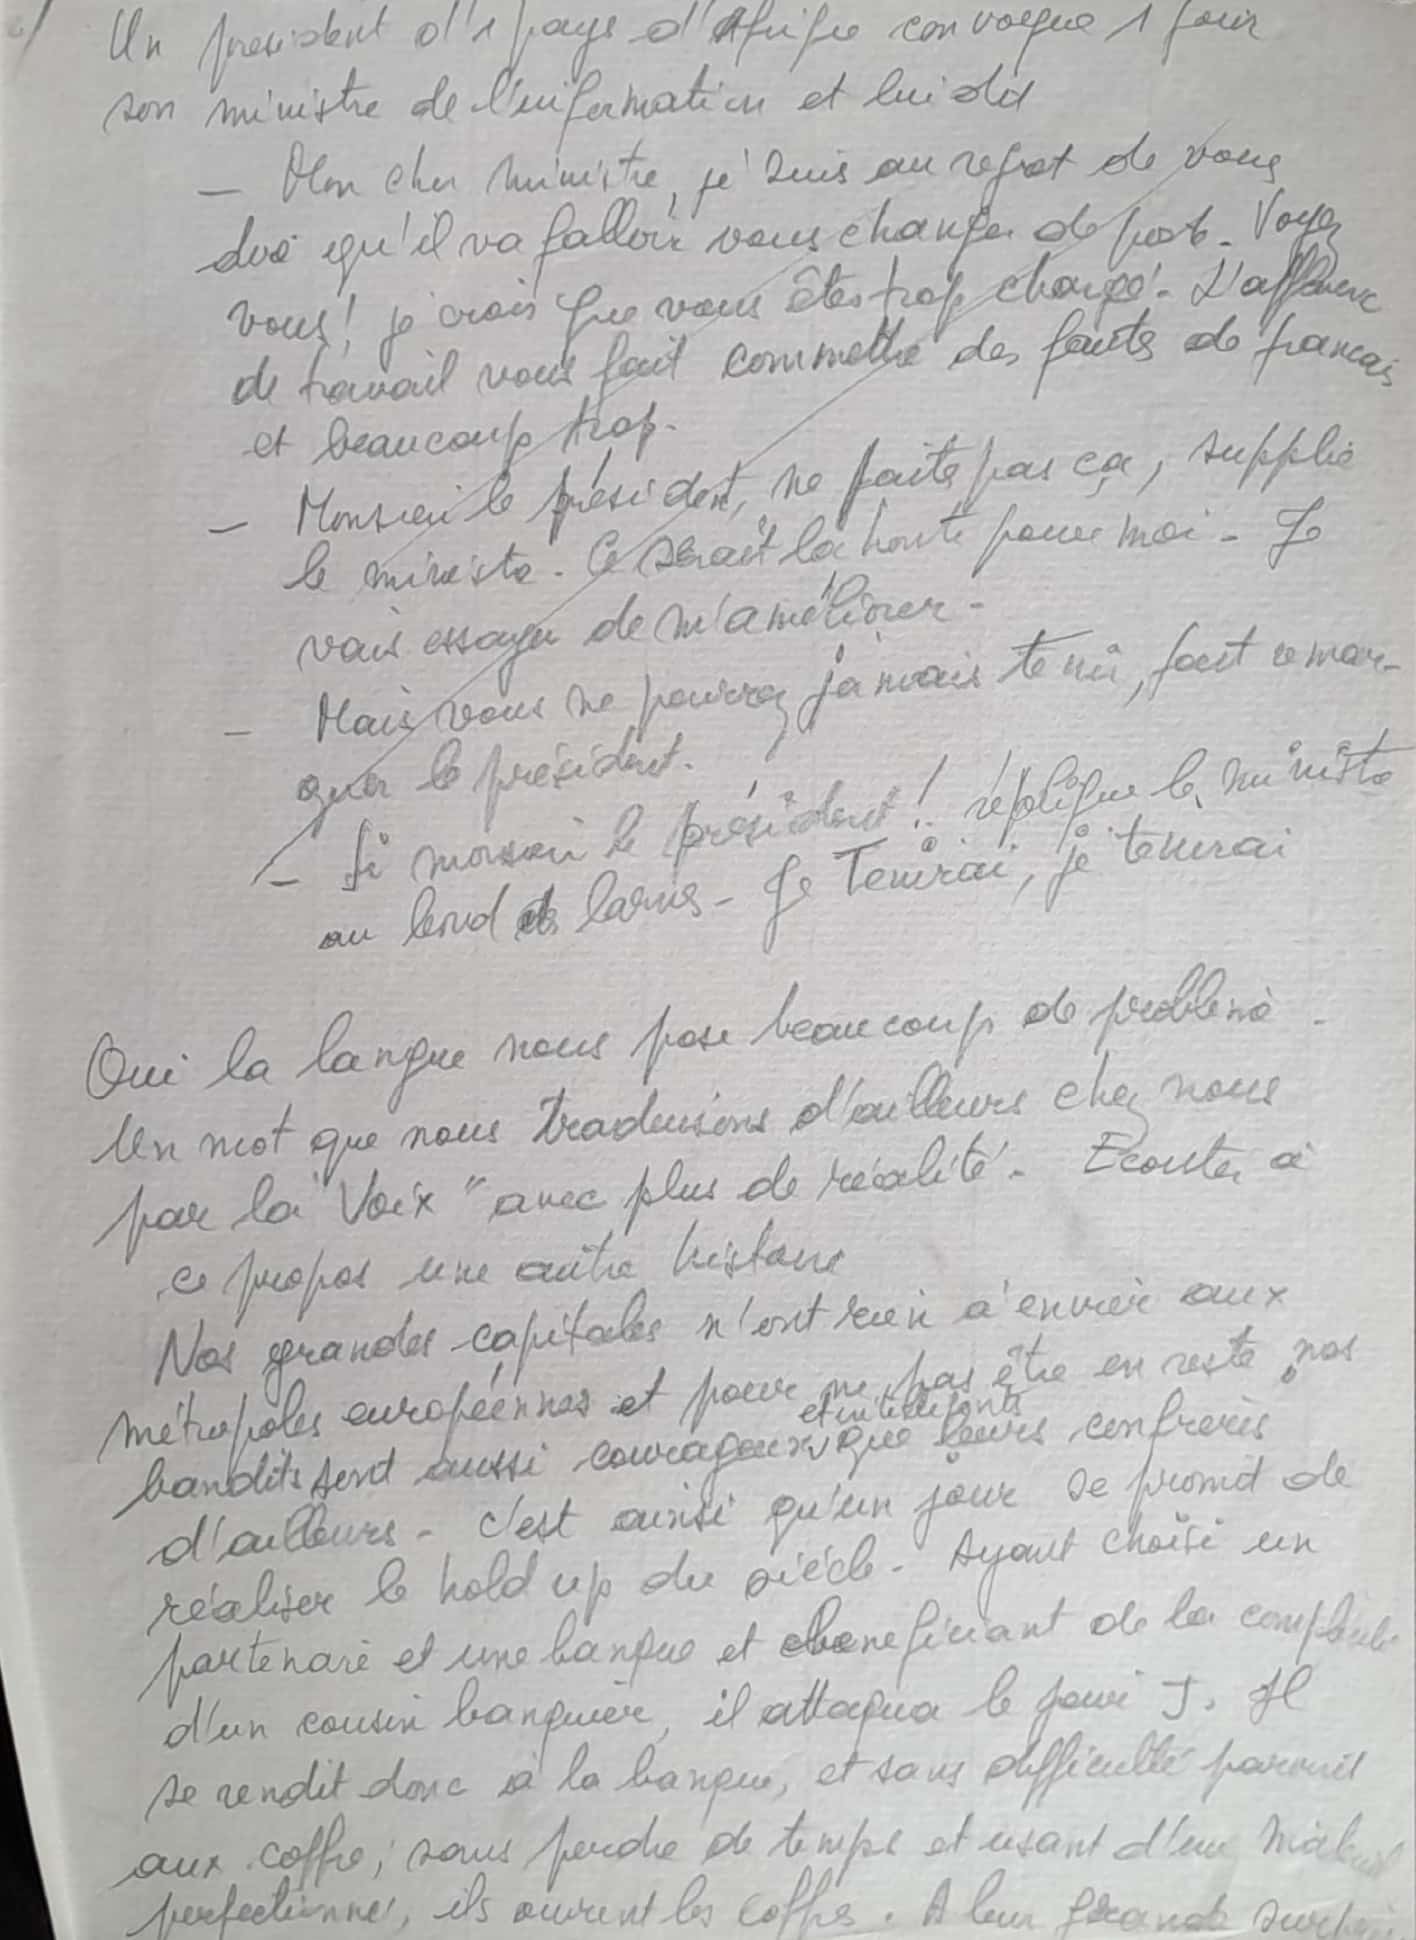 Un president d'1 pays d'Afrique convoque 1 jour
son ministre de l'information et lui dit
— Mon cher ministre, je suis au regret de vous
dire qu'il va falloir vous changer de poste. Voyez
vous! je crois que vous êtes trop chargé. L'affluence
de travail vous fait commettre des fautes de francais
et beaucoup trop.
— Monsieur le président, ne faites pas ça, supplie
le ministre. Ce serait la honte pour moi - Je
vais essayer de m'améliorer -
— Mais vous ne pourrez jamais tenir, fait remar-
quer le président.
— Si monsieur le président! réplique le ministre
au bord des larmes - Je Tenirai, je tenirai
Oui la langue nous pose beaucoup de problème -
Un mot que nous traduisons d'ailleurs chez nous
par la "Voix" avec plus de réalité. Ecoutez à
ce propos une autre histoire
Nos grandes capitales n'ont rien à envier aux
métropoles européennes et pour ne pas être en reste, nos
bandits sont aussi courageux et intelligents que leurs confrères
d'ailleurs - c'est ainsi qu'un jour se promit de
réaliser le hold up du siècle - Ayant choisi un
partenaire et une banque et beneficiant de la complicité
d'un cousin banquier, il attaqua le jour J. Il
se rendit donc à la banque, et sans difficulté parvint
aux coffre; sans perdre de temps et usant d'un matériel
perfectionné, ils ouvrent les coffres. A leur grande surprise